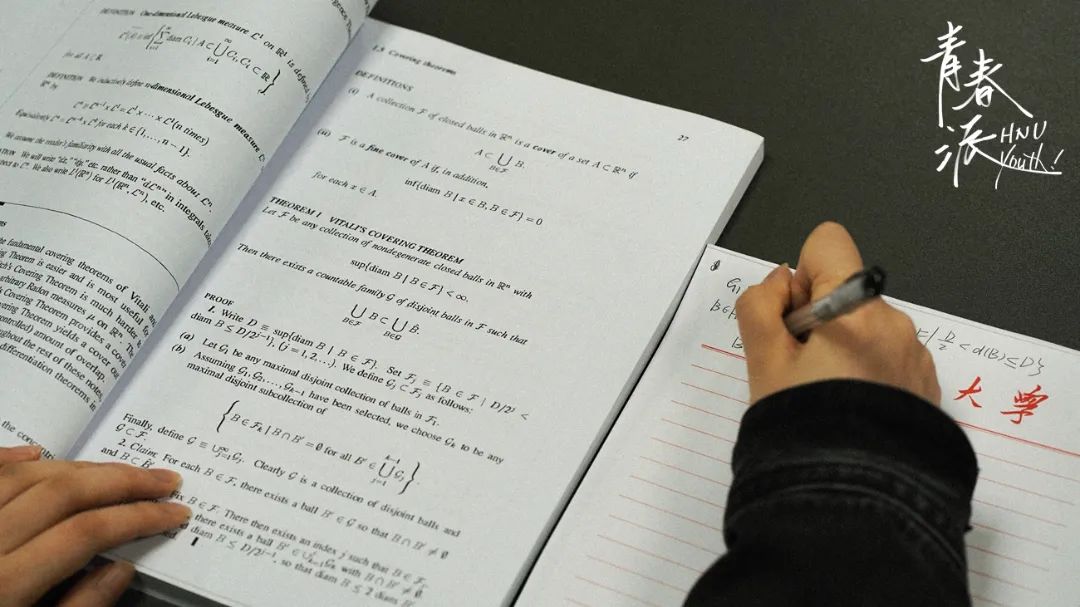 DEFINITION One-dimensional Lebesgue measure L¹ on ℝ¹ is defined
for all A ⊂ ℝ
DEFINITION We inductively define n-dimensional Lebesgue measure Lⁿ
ℝⁿ by
Lⁿ ≡ Lⁿ⁻¹ × L¹ = L¹ × ··· × L¹ (n times)
Equivalently Lⁿ = Lⁿ⁻ᵏ × Lᵏ for each k ∈ {1, ..., n − 1}.
We assume the reader's familiarity with all the usual facts about Lⁿ.
We will write "dx," "dy," etc. rather than "dLⁿ" in integrals
We also write L¹(ℝⁿ) for L¹(ℝⁿ, Lⁿ), etc.
the fundamental covering theorems of Vitali
Theorem is easier and is most useful
Theorem is much harder
arbitrary Radon measures μ on ℝⁿ. The
Covering Theorem provides a
covering Theorem yields a cover
controlled) amount of overlap.
throughout the rest of these notes,
differentiation theorems in
1.5 Covering theorems
27
DEFINITIONS
(i) A collection F of closed balls in ℝⁿ is a cover of a set A ⊂ ℝⁿ if
A ⊂ ⋃ B.
B∈F
(ii) F is a fine cover of A if, in addition,
inf{diam B | x ∈ B, B ∈ F} = 0
for each x ∈ A.
THEOREM 1 VITALI'S COVERING THEOREM
Let F be any collection of nondegenerate closed balls in ℝⁿ with
sup{diam B | B ∈ F} < ∞.
Then there exists a countable family G of disjoint balls in F such that
⋃ B ⊂ ⋃ B̂.
B∈F B∈G
PROOF
1. Write D ≡ sup{diam B | B ∈ F}. Set Fⱼ ≡ {B ∈ F | D/2ʲ <
diam B ≤ D/2ʲ⁻¹}, (j = 1, 2, ...). We define Gⱼ ⊂ Fⱼ as follows:
(a) Let G₁ be any maximal disjoint collection of balls in F₁.
(b) Assuming G₁, G₂, ..., Gₖ₋₁ have been selected, we choose Gₖ to be any
maximal disjoint subcollection of
{B ∈ Fₖ | B ∩ B′ = ∅ for all B′ ∈ ⋃ⱼ₌₁ᵏ⁻¹ Gⱼ}.
Finally, define G ≡ ∪ⱼ₌₁^∞ Gⱼ. Clearly G is a collection of disjoint balls and
G ⊂ F.
2. Claim: For each B ∈ F, there exists a ball B′ ∈ G so that B ∩ B′ ≠ ∅
and B ⊂ B̂′.
Fix B ∈ F. There then exists an index j such that B ∈ Fⱼ.
there exists a ball B′ ∈ ∪ₖ₌₁ʲ Gₖ with B ∩ B′ ≠ ∅.
diam B ≤ D/2ʲ⁻¹, so that diam B ≤ 2 diam B′
G₁
< d(B) ≤ D}
大学
青春派
HNU
Youth!